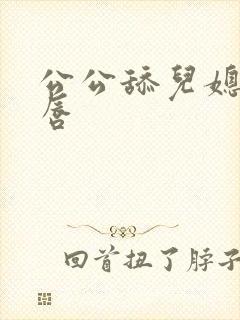 公公舔兒媳
唇
回首扭了脖子